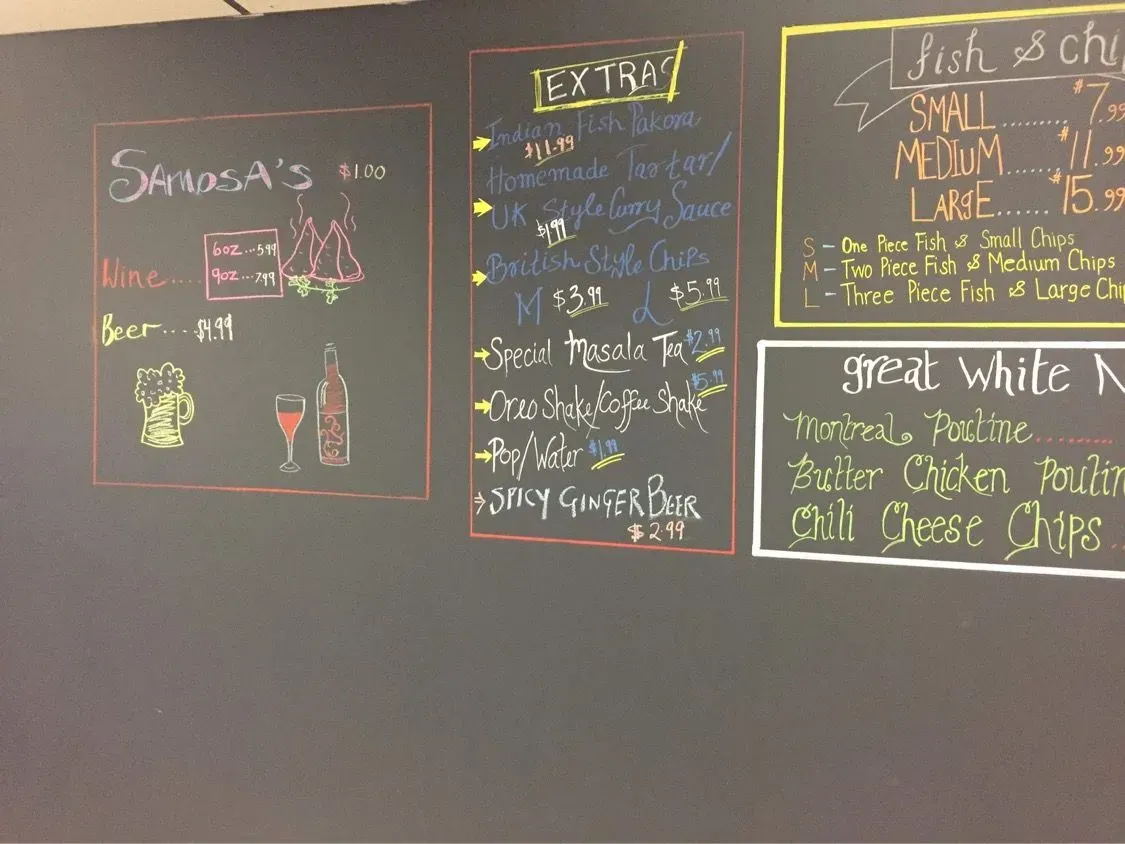 SAMOSA'S $1.00
Wine.... 6oz...5.99
9oz...7.99
Beer.... $4.99
EXTRAS
Indian Fish Pakora
$11.99
Homemade Tartar/
UK Style Curry Sauce
$1.99
British Style Chips
M $3.99 L $5.99
Special Masala Tea $2.99
Oreo Shake/Coffee Shake $5.99
Pop/Water $1.99
SPICY GINGER BEER
$2.99
fish & chi
SMALL........ $7.99
MEDIUM...... $11.99
LARGE...... $15.99
S - One Piece Fish & Small Chips
M - Two Piece Fish & Medium Chips
L - Three Piece Fish & Large Chi
great White N
Montreal Poutine.........
Butter Chicken Poutin
Chili Cheese Chips..